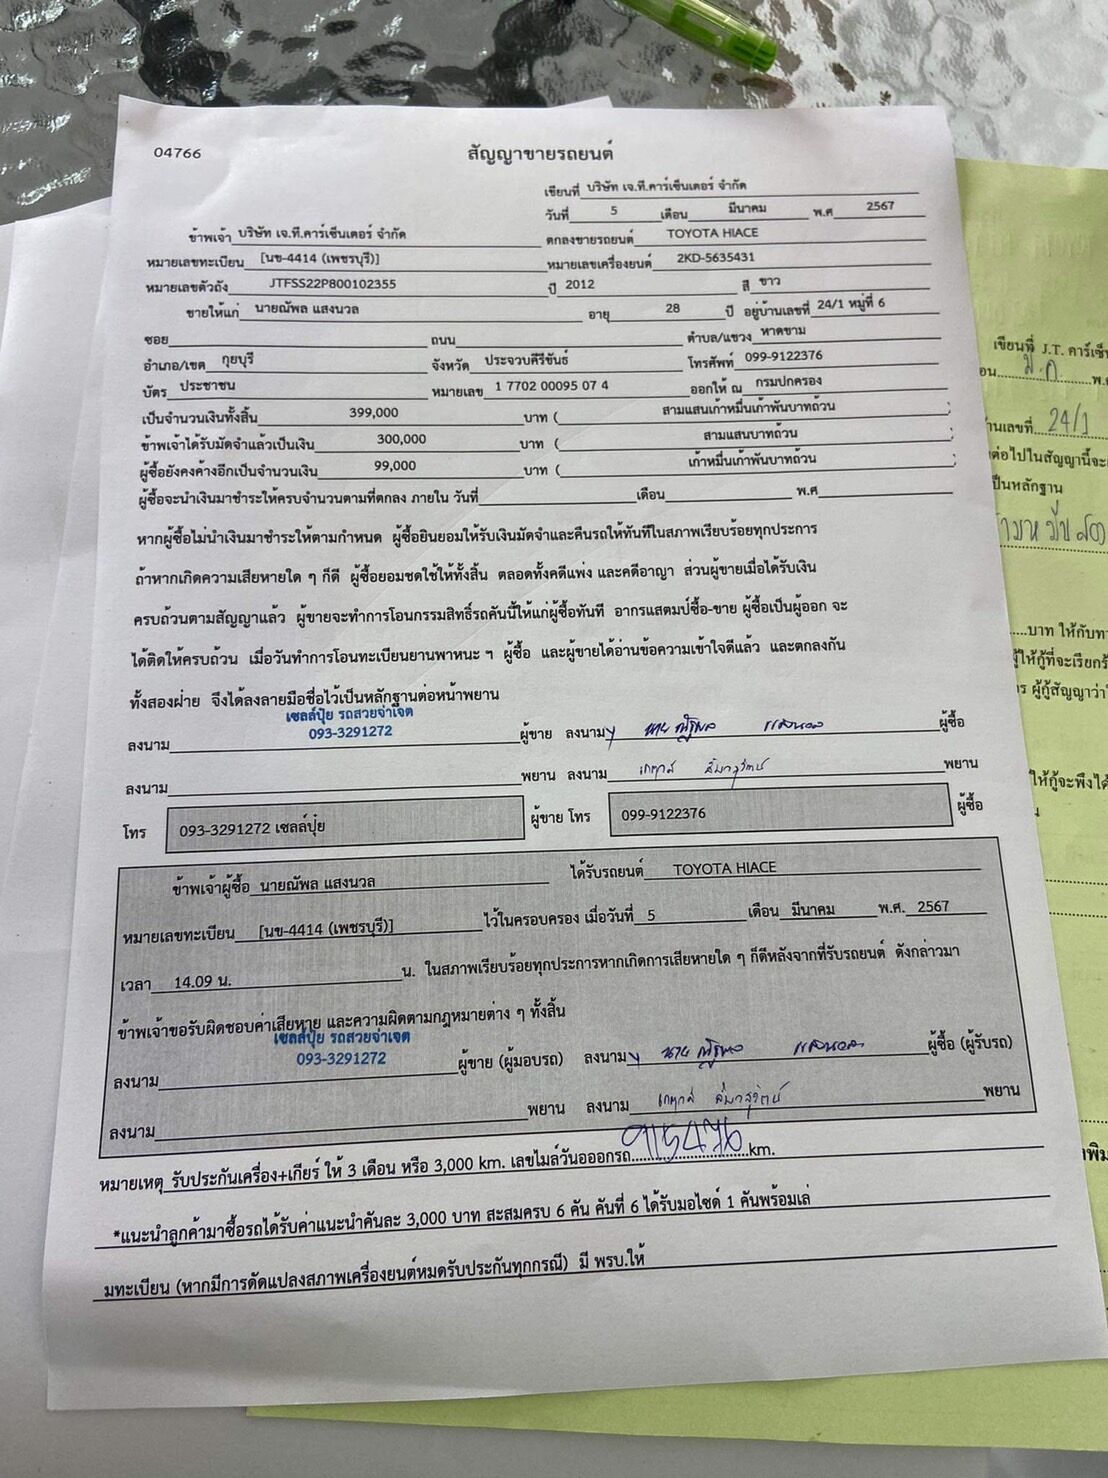 04766
สัญญาขายรถยนต์
เขียนที่ บริษัท เจ.ที.คาร์เซ็นเตอร์ จำกัด
วันที่ 5 เดือน มีนาคม พ.ศ 2567
ข้าพเจ้า บริษัท เจ.ที.คาร์เซ็นเตอร์ จำกัด ตกลงขายรถยนต์ TOYOTA HIACE
หมายเลขทะเบียน [นข-4414 (เพชรบุรี)] หมายเลขเครื่องยนต์ 2KD-5635431
หมายเลขตัวถัง JTFSS22P800102355 ปี 2012 สี ขาว
ขายให้แก่ นายณัพล แสงนวล อายุ 28 ปี อยู่บ้านเลขที่ 24/1 หมู่ที่ 6
ซอย ถนน ตำบล/แขวง หาดขาม
อำเภอ/เขต กุยบุรี จังหวัด ประจวบคีรีขันธ์ โทรศัพท์ 099-9122376
บัตร ประชาชน หมายเลข 1 7702 00095 07 4 ออกให้ ณ กรมปกครอง
เป็นจำนวนเงินทั้งสิ้น 399,000 บาท ( สามแสนเก้าหมื่นเก้าพันบาทถ้วน )
ข้าพเจ้าได้รับมัดจำแล้วเป็นเงิน 300,000 บาท ( สามแสนบาทถ้วน )
ผู้ซื้อยังคงค้างอีกเป็นจำนวนเงิน 99,000 บาท ( เก้าหมื่นเก้าพันบาทถ้วน )
ผู้ซื้อจะนำเงินมาชำระให้ครบจำนวนตามที่ตกลง ภายใน วันที่ เดือน พ.ศ
หากผู้ซื้อไม่นำเงินมาชำระให้ตามกำหนด ผู้ซื้อยินยอมให้รับเงินมัดจำและคืนรถให้ทันทีในสภาพเรียบร้อยทุกประการ
ถ้าหากเกิดความเสียหายใด ๆ ก็ดี ผู้ซื้อยอมชดใช้ให้ทั้งสิ้น ตลอดทั้งคดีแพ่ง และคดีอาญา ส่วนผู้ขายเมื่อได้รับเงิน
ครบถ้วนตามสัญญาแล้ว ผู้ขายจะทำการโอนกรรมสิทธิ์รถคันนี้ให้แก่ผู้ซื้อทันที อากรแสตมป์ซื้อ-ขาย ผู้ซื้อเป็นผู้ออก จะ
ได้ติดให้ครบถ้วน เมื่อวันทำการโอนทะเบียนยานพาหนะ ฯ ผู้ซื้อ และผู้ขายได้อ่านข้อความเข้าใจดีแล้ว และตกลงกัน
ทั้งสองฝ่าย จึงได้ลงลายมือชื่อไว้เป็นหลักฐานต่อหน้าพยาน
เซลล์ปุ้ย รถสวยจ่าเจต
093-3291272
ลงนาม ผู้ขาย ลงนาม นาย ณัฐพล แสงนวล ผู้ซื้อ
ลงนาม พยาน ลงนาม พยาน
โทร 093-3291272 เซลล์ปุ้ย ผู้ขาย โทร 099-9122376 ผู้ซื้อ
ข้าพเจ้าผู้ซื้อ นายณัพล แสงนวล ได้รับรถยนต์ TOYOTA HIACE
หมายเลขทะเบียน [นข-4414 (เพชรบุรี)] ไว้ในครอบครอง เมื่อวันที่ 5 เดือน มีนาคม พ.ศ. 2567
เวลา 14.09 น. น. ในสภาพเรียบร้อยทุกประการหากเกิดการเสียหายใด ๆ ก็ดีหลังจากที่รับรถยนต์ ดังกล่าวมา
ข้าพเจ้าขอรับผิดชอบค่าเสียหาย และความผิดตามกฎหมายต่าง ๆ ทั้งสิ้น
เซลล์ปุ้ย รถสวยจ่าเจต
093-3291272
ลงนาม ผู้ขาย (ผู้มอบรถ) ลงนาม นาย ณัฐพล แสงนวล ผู้ซื้อ (ผู้รับรถ)
ลงนาม พยาน ลงนาม พยาน
หมายเหตุ รับประกันเครื่อง+เกียร์ ให้ 3 เดือน หรือ 3,000 km. เลขไมล์วันออกรถ 915476 km.
*แนะนำลูกค้ามาซื้อรถได้รับค่าแนะนำคันละ 3,000 บาท สะสมครบ 6 คัน คันที่ 6 ได้รับมอไซด์ 1 คันพร้อมเล่
มทะเบียน (หากมีการดัดแปลงสภาพเครื่องยนต์หมดรับประกันทุกกรณี) มี พรบ.ให้
เขียนที่ J.T. คาร์เซ็น
มี.ค. พ.
านเลขที่ 24/1
ต่อไปในสัญญานี้จะ
ป็นหลักฐาน
บาท ให้กับทา
ผู้ให้กู้ที่จะเรียกร้
ร ผู้กู้สัญญาว่าใ
ให้กู้จะพึงได้